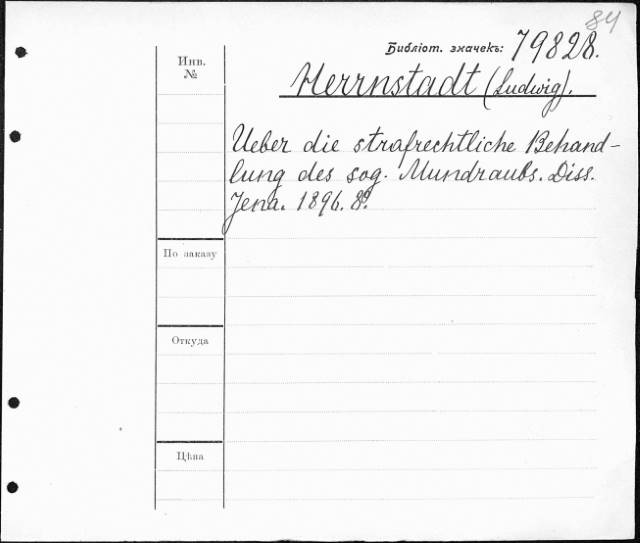 84
Библіот. значекъ: 79828.
Инв.
№
Herrnstadt (Ludwig).
Ueber die strafrechtliche Behand-
lung des sog. Mundraubs. Diss.
Jena. 1896. 8º.
По заказу
Откуда
Цѣна